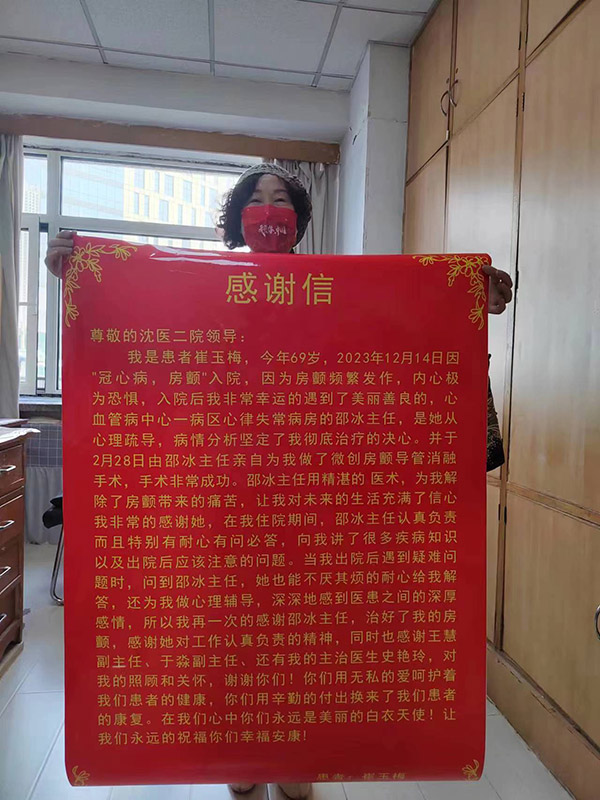 感谢信
尊敬的沈医二院领导：
我是患者崔玉梅，今年69岁，2023年12月14日因
"冠心病，房颤"入院，因为房颤频繁发作，内心极
为恐惧，入院后我非常幸运的遇到了美丽善良的，心
血管病中心一病区心律失常病房的邵冰主任，是她从
心理疏导，病情分析坚定了我彻底治疗的决心。并于
2月28日由邵冰主任亲自为我做了微创房颤导管消融
手术，手术非常成功。邵冰主任用精湛的 医术，为我
解除了房颤带来的痛苦，让我对未来的生活充满了信心
我非常的感谢她，在我住院期间，邵冰主任认真负责
而且特别有耐心有问必答，向我讲了很多疾病知识
以及出院后应该注意的问题。当我出院后遇到疑难问
题时，问到邵冰主任，她也能不厌其烦的耐心给我解
答，还为我做心理辅导，深深地感到医患之间的深厚
感情，所以我再一次的感谢邵冰主任，治好了我的房
颤，感谢她对工作认真负责的精神，同时也感谢王慧
副主任、于淼副主任、还有我的主治医生史艳玲，对
我的照顾和关怀，谢谢你们！你们用无私的爱呵护着
我们患者的健康，你们用辛勤的付出换来了我们患者
的康复。在我们心中你们永远是美丽的白衣天使！让
我们永远的祝福你们幸福安康！
患者：崔玉梅